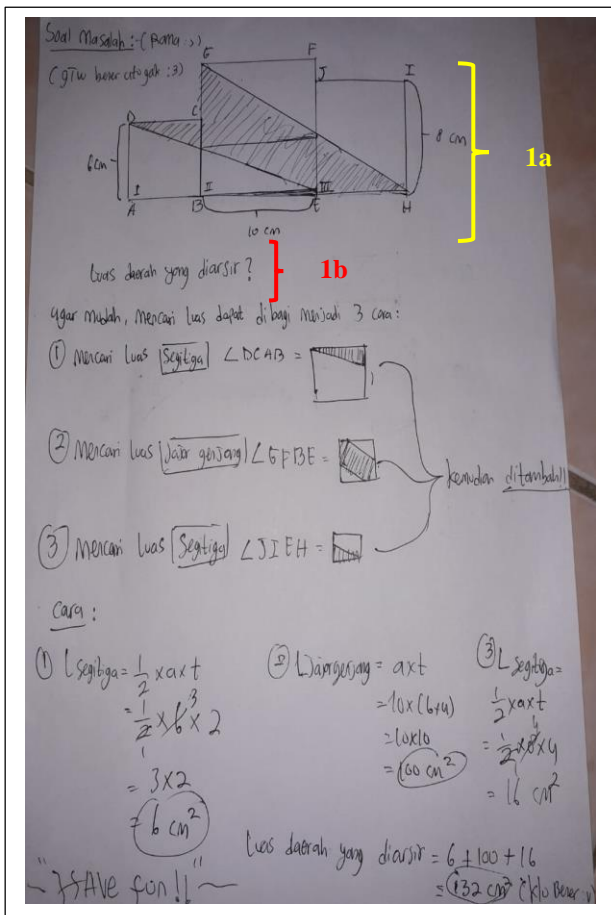 Soal Masalah :-(Rama :))
(gTw bener ato gak :3)
G F
J I
D C
6 cm
8 cm
1a
I II III
A B E H
10 cm
Luas daerah yang diarsir ?
1b
agar mudah, mencari luas dapat dibagi menjadi 3 cara :
① Mencari luas Segitiga ∠DCAB =
② Mencari luas Jajar genjang ∠GFBE =
kemudian ditambah!!
③ Mencari luas Segitiga ∠JIEH =
Cara :
① L segitiga = 1/2 x a x t
= 1/2 x 6 x 2
3
1
= 3 x 2
= 6 cm²
② L Jajargenjang = a x t
= 10 x (6+4)
= 10x10
= 100 cm²
③ L segitiga =
1/2 x a x t
4
= 1/2 x 8 x 4
1
= 16 cm²
Luas daerah yang diarsir = 6 + 100 + 16
= 132 cm² (klo bener :v)
~ "HAVE fun!!" ~